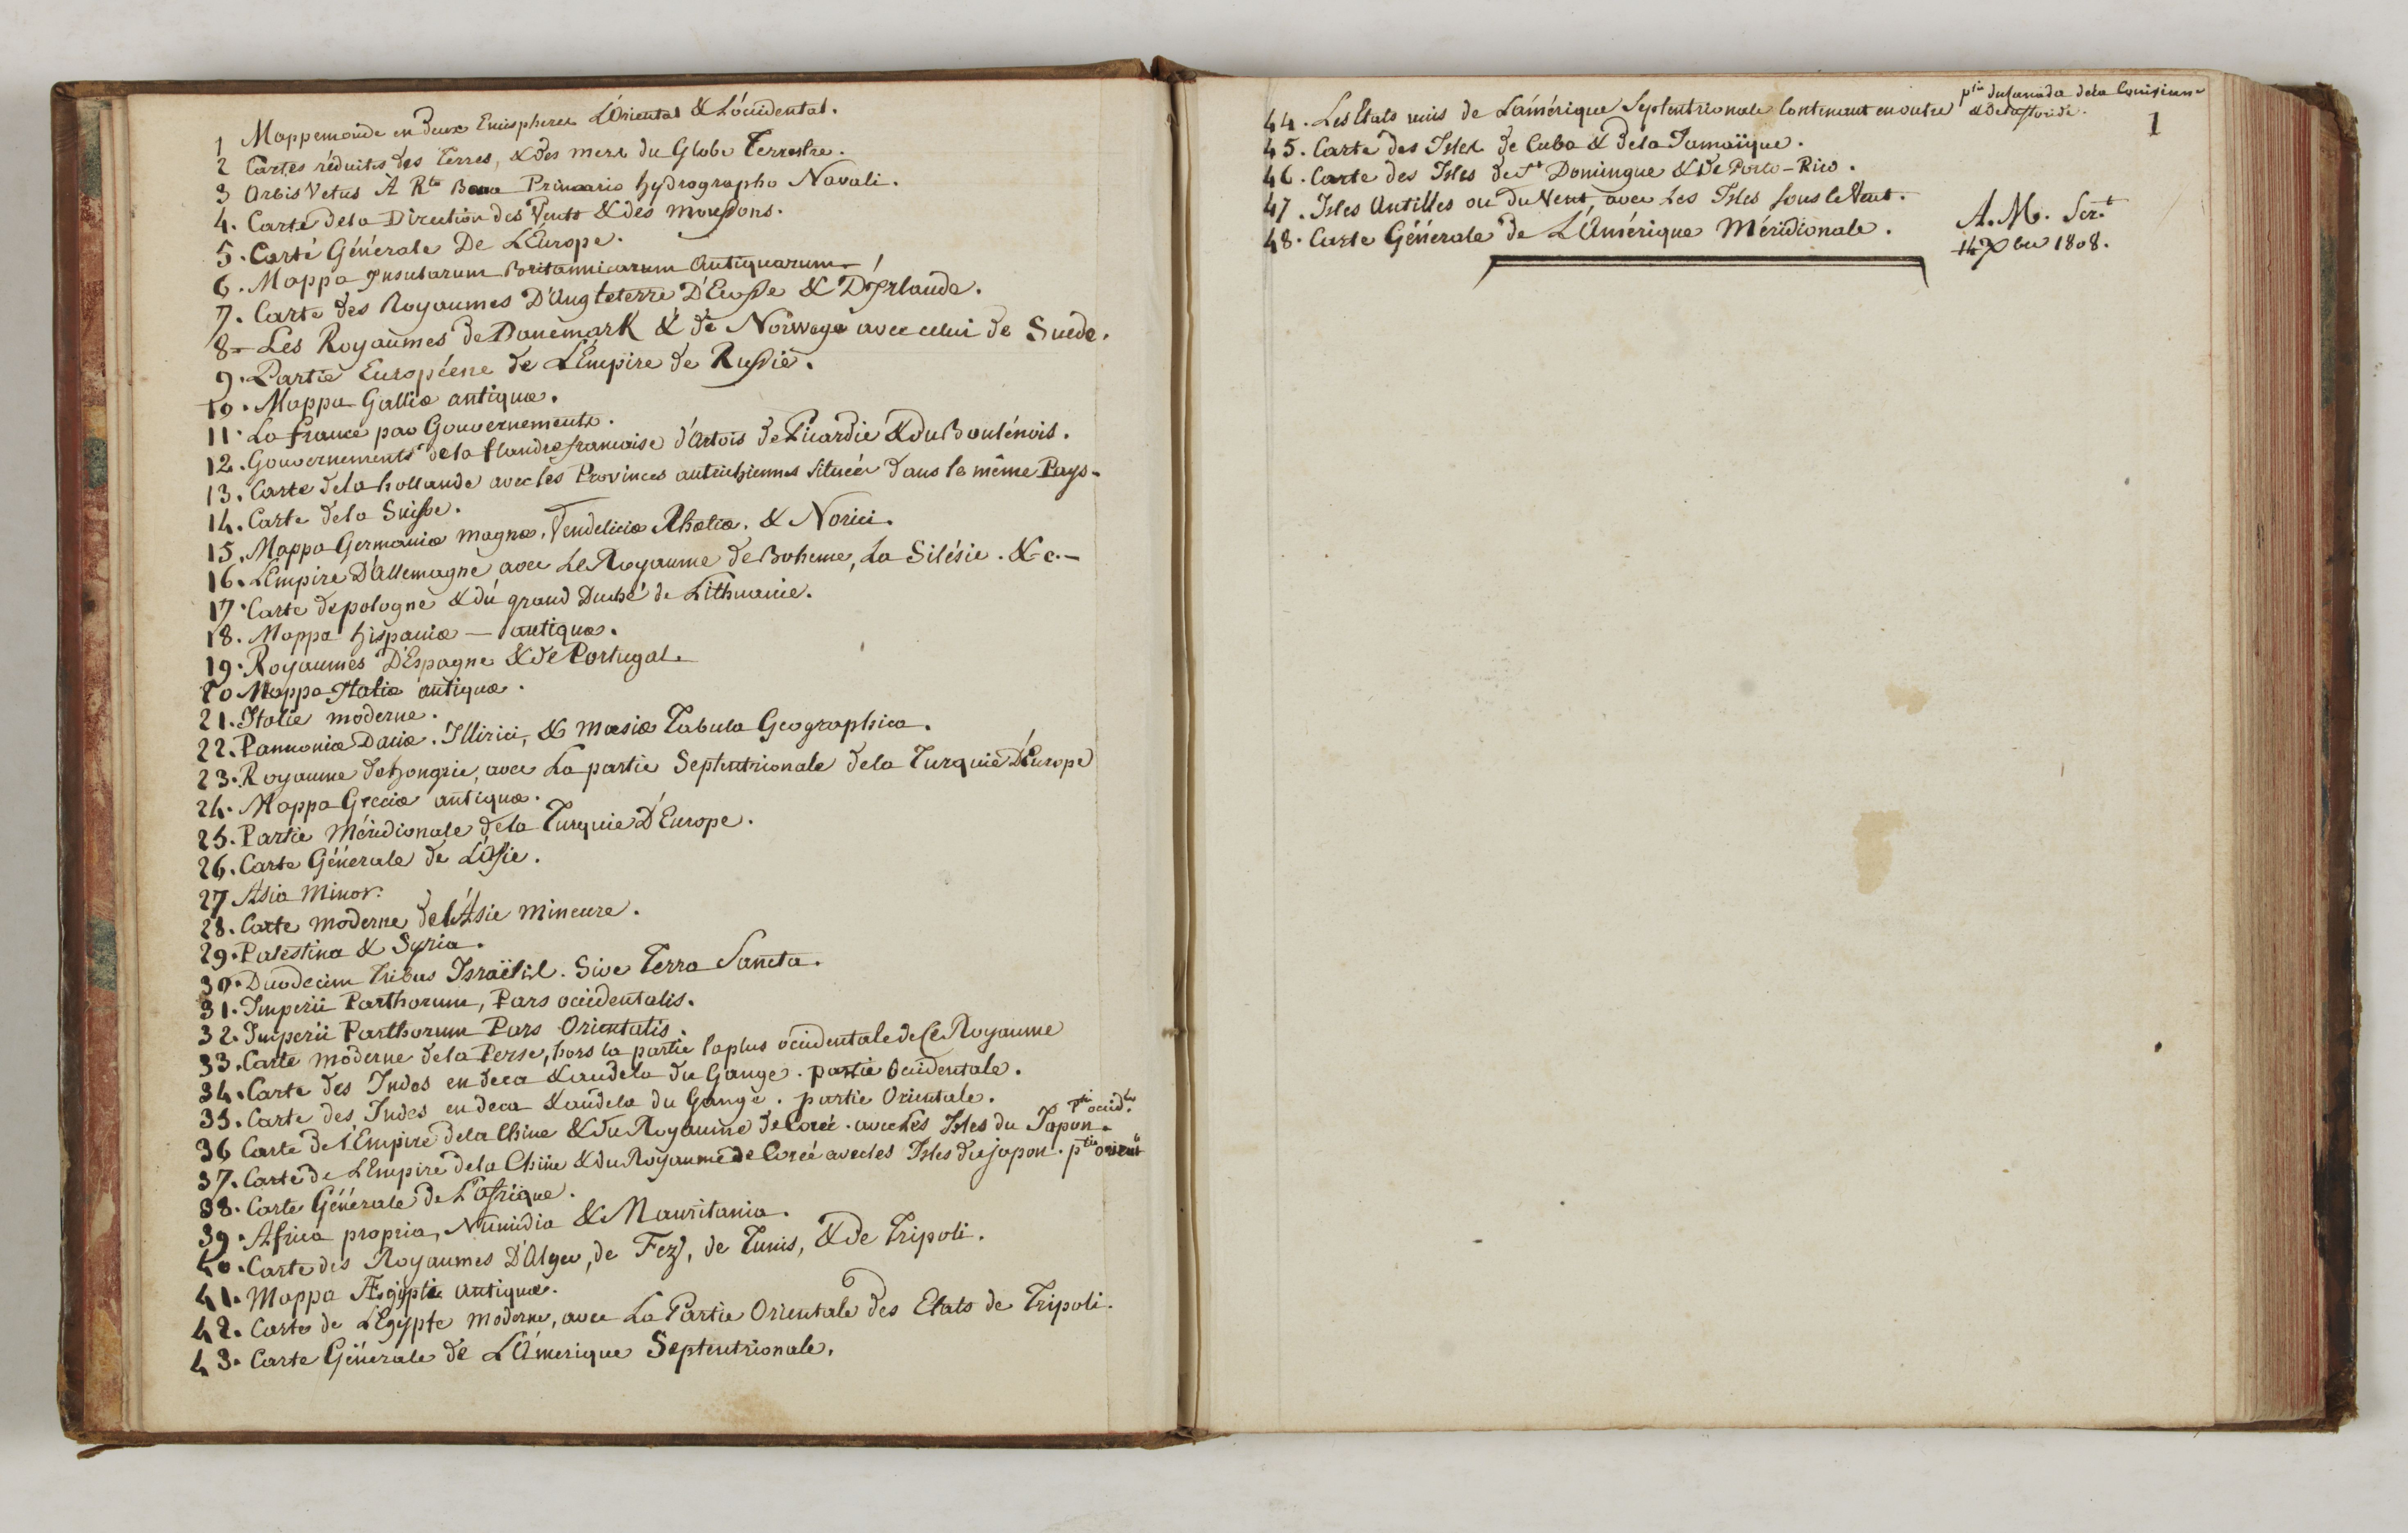 1 Mappemonde en deux Emispheres L'Oriental & L'occidental.
2 Cartes réduites des Terres, & des mers du Globe Terrestre.
3 Orbis Vetus A Rto Bona Primario hydrographo Navali.
4. Carte de la Direction des Vents & des moussons.
5. Carte Générale De L'Europe.
6. Mappa Insularum Britannicarum Antiquarum
7. Carte des Royaumes D'Angleterre D'Ecosse & D'Irlande.
8 Les Royaumes de Danemark & de Norwege avec celui de Suede.
9. Partie Européene de L'Empire de Russie.
10. Mappa Galliæ antiquæ.
11. La france par Gouvernements.
12. Gouvernements de la flandre francaise d'Artois de Picardie & du Boulénois.
13. Carte de la hollande avec les Provinces autrichiennes Situées dans le même Pays
14. Carte de la Suisse.
15. Mappa Germaniæ magnæ, Vendeliciæ Rhætiæ. & Norici.
16. L'Empire D'Allemagne avec Le Royaume de Boheme, La Silésie. &c.
17. Carte de pologne & du grand Duché de Lithuanie.
18. Mappa hispaniæ — antiquæ.
19. Royaumes D'Espagne & de Portugal.
20 Mappa Italiæ antiquæ.
21. Italie moderne.
22. Pannoniæ Daciæ. Illirici, & mæsiæ Tabula Geographica.
23. Royaume de hongrie, avec La partie Septentrionale de la Turquie D'Europe
24. Mappa Greciæ antiquæ.
25. Partie Méridionale de la Turquie D'Europe.
26. Carte Générale de L'Asie.
27 Asia Minor.
28. Carte moderne de l'Asie mineure.
29. Palestina & Syria.
30. Duodecim Tribus Israëlis. Sive Terra Sancta.
31. Imperii Parthorum, Pars occidentalis.
32. Imperii Parthorum Pars Orientalis.
33. Carte moderne de la Perse, hors la partie la plus occidentale de Ce Royaume
34. Carte des Indes en deca & audela du Gange. partie Occidentale.
35. Carte des Indes en deca & audela du Gange. partie Orientale.
36 Carte de l'Empire de la Chine & du Royaume de Corée. avec Les Isles du Japon. Ptie occidle.
37. Carte de L'Empire de la Chine & du Royaume de Corée avec les Isles du japon. ptie orientle
38. Carte Générale de L'afrique.
39. Africa propria, Numidia & Mauritania.
40. Carte des Royaumes D'Alger, de Fez, de Tunis, & de Tripoli.
41. Mappa Ægiptiæ antiquæ.
42. Carte de L'Egypte moderne, avec La Partie Orientale des Etats de Tripoli.
43. Carte Générale de L'Amerique Septentrionale.
44. Les Etats unis de L'amérique Septentrionale Contenant en outre ptie du Canada de la Louisiane
& de la floride.
1
45. Carte des Isles de Cuba & de la Jamaïque.
46. Carte des Isles de St Domingue & De Porto-Rico.
47. Isles Antilles ou du Vent, avec Les Isles sous le Vent.
48. Carte Générale de L'Amérique Méridionale.
A.M. Scrt
14 Xbre 1808.